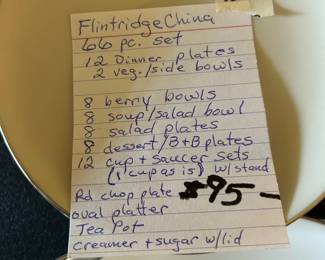 Flintridge China
66 pc. set
12 Dinner plates
2 veg./side bowls
8 berry bowls
8 soup/salad bowl
8 salad plates
8 dessert/B+B plates
12 cup + saucer sets
(1 cup as is) w/stand
Rd chop plate $95-
oval platter
Tea Pot
creamer + sugar w/lid